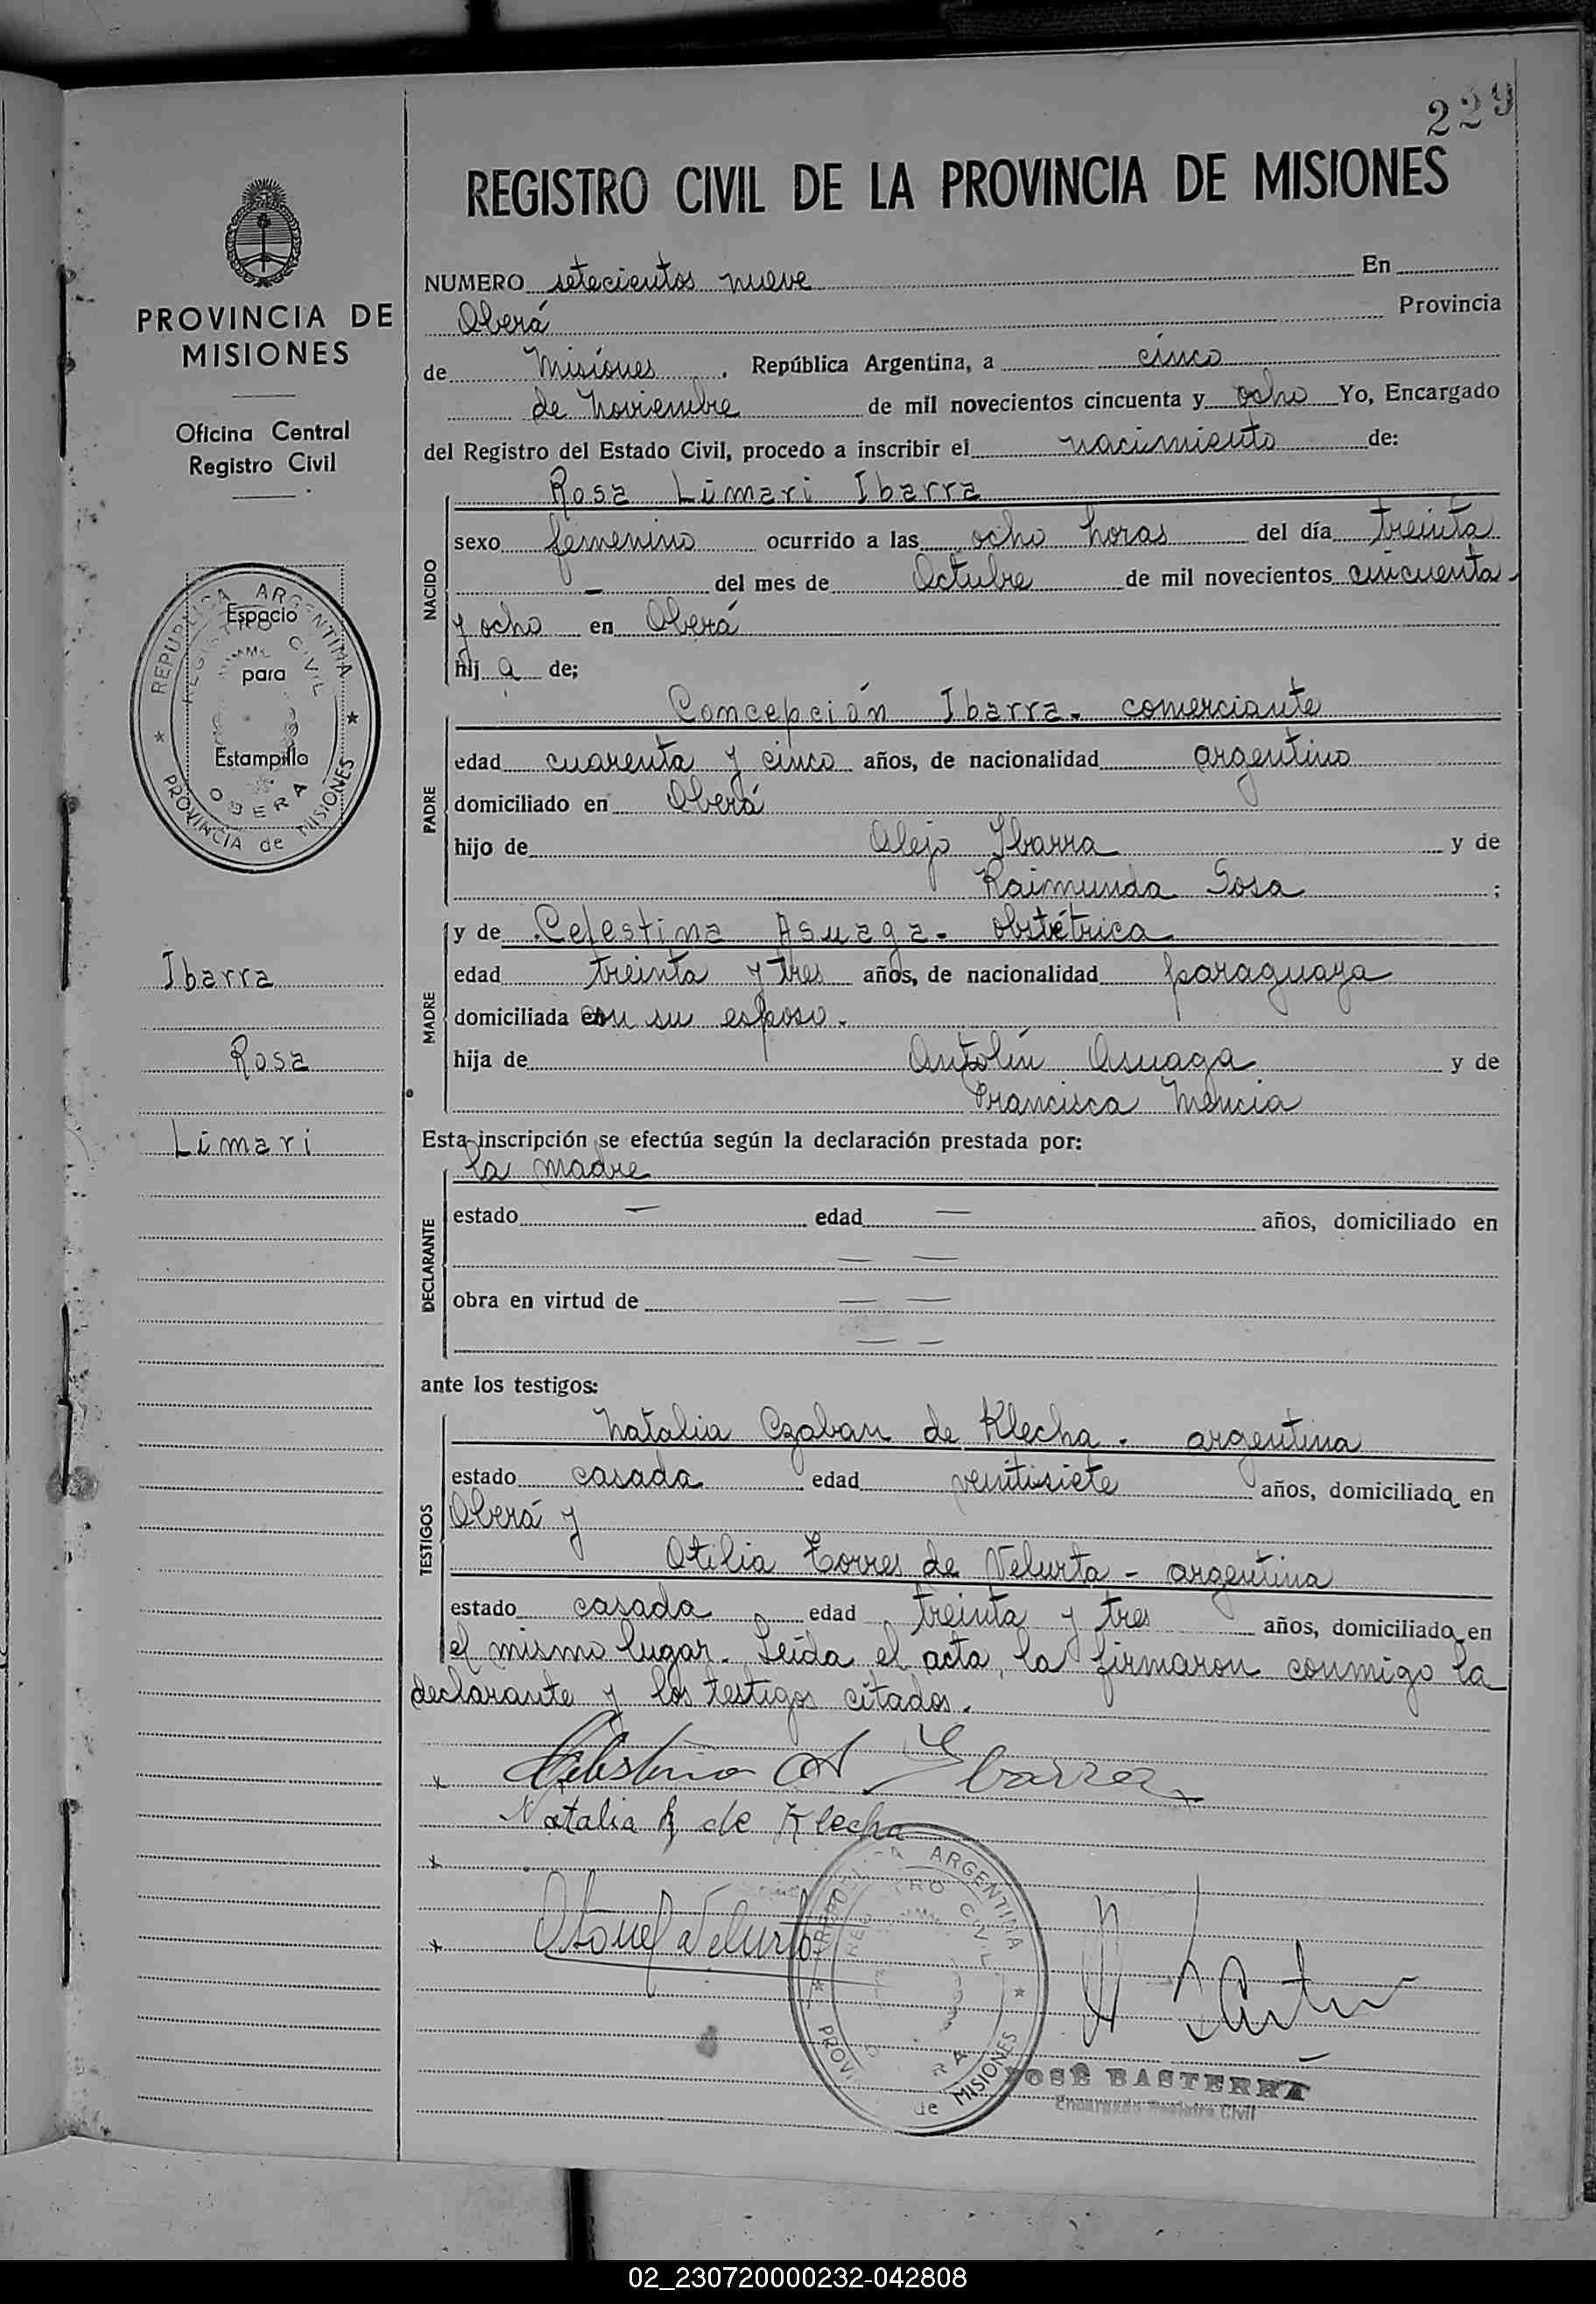 229
REGISTRO CIVIL DE LA PROVINCIA DE MISIONES
PROVINCIA DE
MISIONES
Oficina Central
Registro Civil
REPUBLICA ARGENTINA
REGISTRO CIVIL
Espacio
para
Estampilla
OBERA
PROVINCIA de MISIONES
Ibarra
Rosa
Limari
NUMERO setecientos nueve En
Oberá Provincia
de Misiones, República Argentina, a cinco
de Noviembre de mil novecientos cincuenta y ocho Yo, Encargado
del Registro del Estado Civil, procedo a inscribir el nacimiento de:
NACIDO
Rosa Limari Ibarra
sexo femenino ocurrido a las ocho horas del día treinta
— del mes de Octubre de mil novecientos cincuenta
y ocho en Oberá
hij a de;
PADRE
Concepción Ibarra. comerciante
edad cuarenta y cinco años, de nacionalidad argentino
domiciliado en Oberá
hijo de Alejo Ibarra y de
Raimunda Sosa ;
MADRE
y de Celestina Asuaga. obstétrica
edad treinta y tres años, de nacionalidad paraguaya
domiciliada con su esposo.
hija de Antolín Asuaga y de
Francisca Mencia
Esta inscripción se efectúa según la declaración prestada por:
DECLARANTE
la madre
estado — edad — años, domiciliado en
— —
obra en virtud de — —
— —
ante los testigos:
TESTIGOS
Natalia Czaban de Klecha. argentina
estado casada edad veintisiete años, domiciliada en
Oberá y
Otilia Torres de Velurta - argentina
estado casada edad treinta y tres años, domiciliada en
el mismo lugar. Leída el acta, la firmaron conmigo la
declarante y los testigos citados.
Celestina A Ibarra
Natalia de Klecha
REPUBLICA ARGENTINA
REGISTRO CIVIL
PROVINCIA de MISIONES
JOSÉ BASTERRA
Encargado Registro Civil
02_230720000232-042808